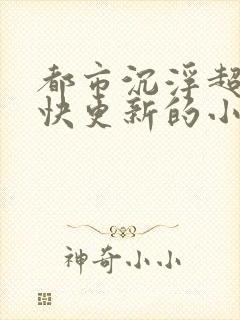 都市沉浮超
快更新的小
神奇小小